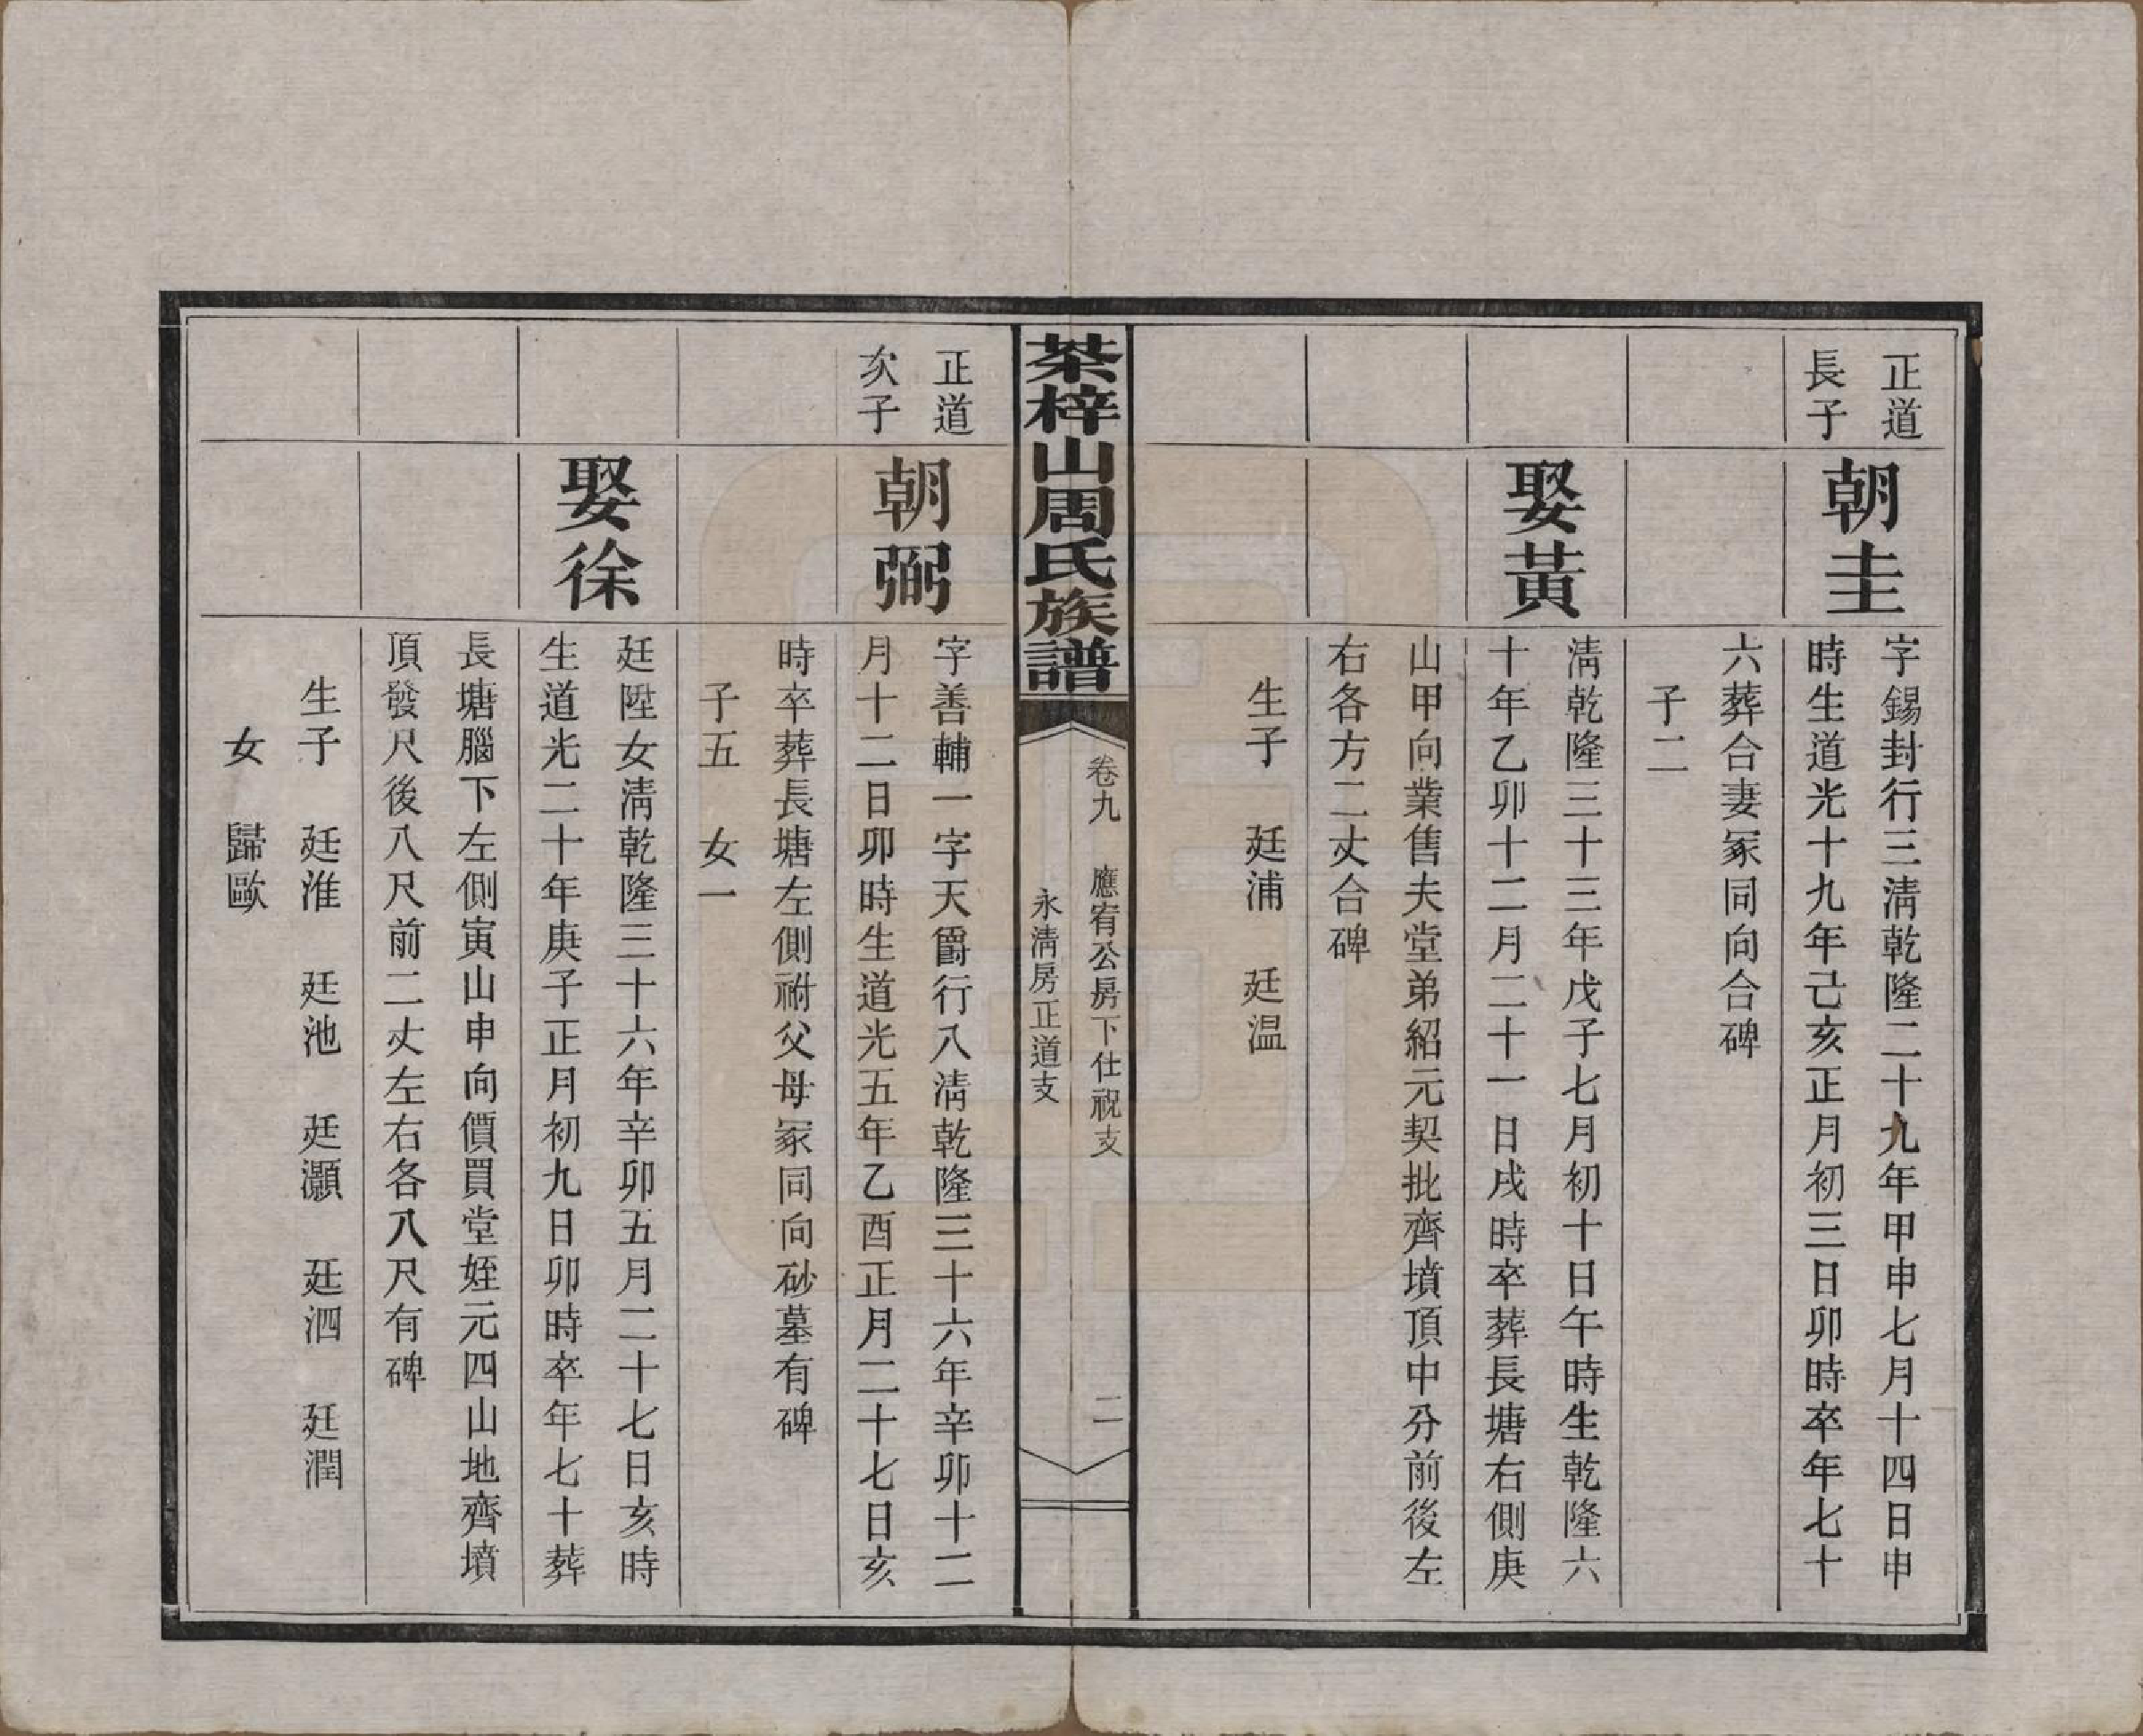 正道
長子
朝圭
字錫封行三清乾隆二十九年甲申七月十四日申
時生道光十九年己亥正月初三日卯時卒年七十
六葬合妻冢同向合碑
子二
娶黃
清乾隆三十三年戊子七月初十日午時生乾隆六
十年乙卯十二月二十一日戌時卒葬長塘右側庚
山甲向業售夫堂弟紹元契批齊墳頂中分前後左
右各方二丈合碑
生子　廷浦　廷温
茶梓山周氏族譜
卷九　應宥公房下仕祝支
永清房正道支
二
正道
次子
朝弼
字善輔一字天爵行八清乾隆三十六年辛卯十二
月十二日卯時生道光五年乙酉正月二十七日亥
時卒葬長塘左側祔父母冢同向砂墓有碑
子五　女一
娶徐
廷陞女清乾隆三十六年辛卯五月二十七日亥時
生道光二十年庚子正月初九日卯時卒年七十葬
長塘腦下左側寅山申向價買堂姪元四山地齊墳
頂發尺後八尺前二丈左右各八尺有碑
生子　廷淮　廷池　廷灝　廷泗　廷潤
女　歸歐